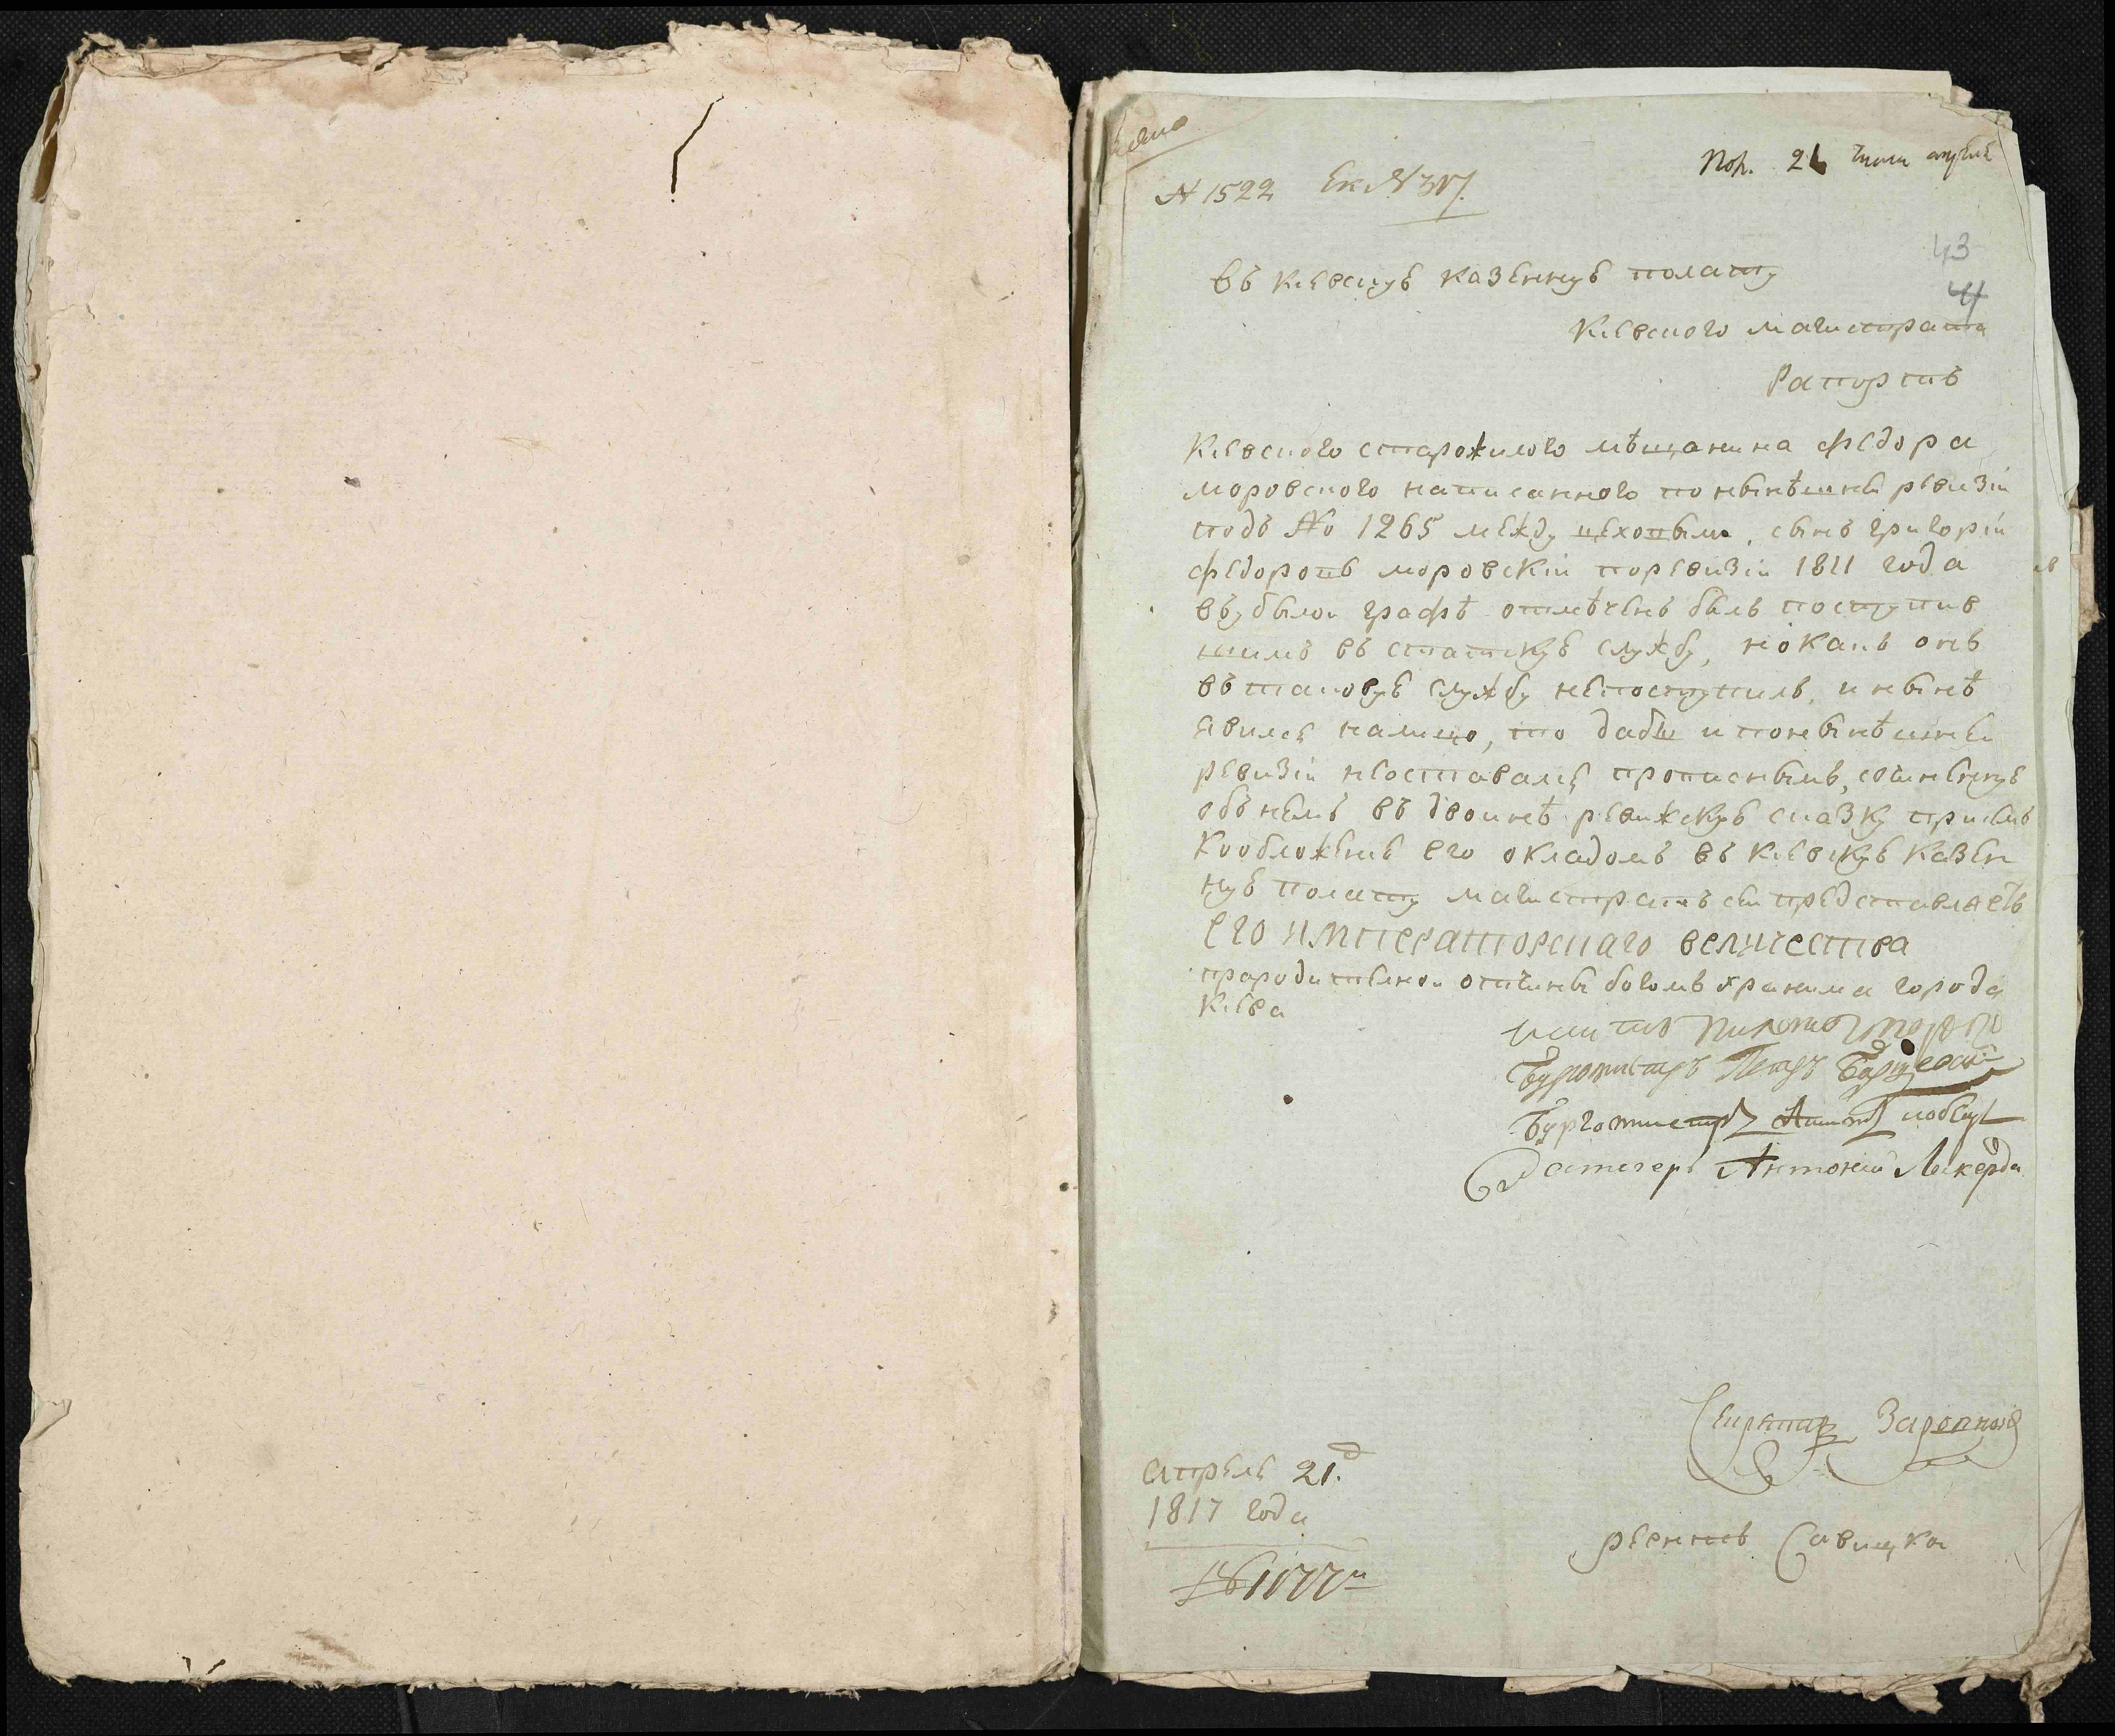 № 1522
Пол. 21 числа апреля
43
41
въ киевскую казенную полату
киевского магистрата
Рапортъ
киевского старожилого мѣщанина федора
моровского написанного по нынѣшней ревизіи
подъ No 1265 между цеховыми, сынъ григорій
федоровъ моровскій по ревизіи 1811 года
въ убылой графѣ отмѣченъ былъ поступив
шимъ въ статскую службу, но какъ онъ
въ таковую службу непоступилъ, и нынѣ
явился налицо, то дабы и по нынѣшней
ревизіи неоставался прописнымъ, сочиненную
объ немъ въ двойнѣ ревижскую сказку при семъ
к обложению его окладомъ въ киевскую казен
ную полату магистратъ сей представляетъ
его императорскаго величества
прародительной отчины богомъ хранима города
киева
Бургомистръ Петръ
Бургомистръ
Ратсгеръ Антоній Лакерда
Секретарь
апреля 21.
1817 года
№ 1177
регентъ Савицкой